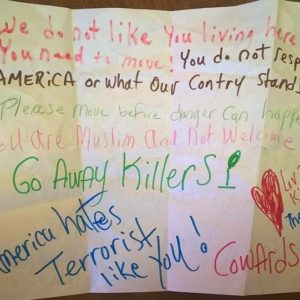 we do not like you living here
You need to move! You do not resp
AMERICA or what Our Contry Stand
Please move before danger Can happ
you are Muslim and Not Welcome
GO AWAY KILLERS!
merica hates
Terrorist
like you!
Cowards